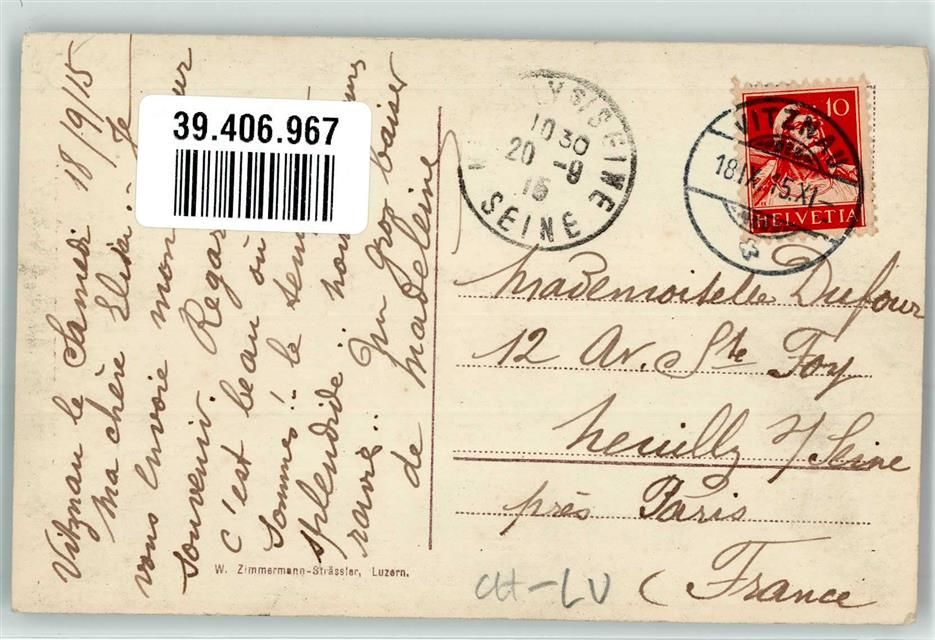 Vitznau le Samedi 18/9/15
Ma chère Elisa. - Je
vous envoie mon
souvenir. Regar
C'est beau où
Sommes! le tem
splendide
ravis. Un gros baiser
de Madeleine
39.406.967
W. Zimmermann-Strässler, Luzern.
YS/SEINE
1030
20 -9
15
SEINE
10
HELVETIA
VITZNAU
18.IX.15.XI-
Mademoiselle Dufour
12 Av. Ste Foy
Neuilly s/ Seine
près Paris
(France
CH-LU